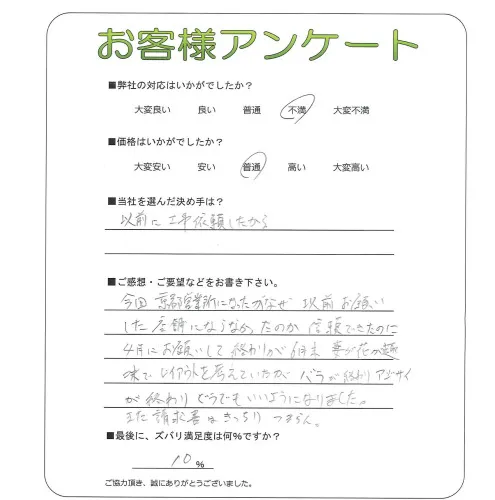 お客様アンケート
■弊社の対応はいかがでしたか？
大変良い 良い 普通 不満 大変不満
■価格はいかがでしたか？
大変安い 安い 普通 高い 大変高い
■当社を選んだ決め手は？
以前に工事依頼したから
■ご感想・ご要望などをお書き下さい。
今回 京都営業所になったがなぜ 以前お願い
した店舗にならなかったのか 信頼できたのに
4月にお願いして 終わりが6月末 妻が花が趣
味で レイアウトを考えていたが バラが終わり アジサイ
が終わり どうでもいいようになりました。
また請求書はきっちり
■最後に、ズバリ満足度は何%ですか？
10 %
ご協力頂き、誠にありがとうございました。